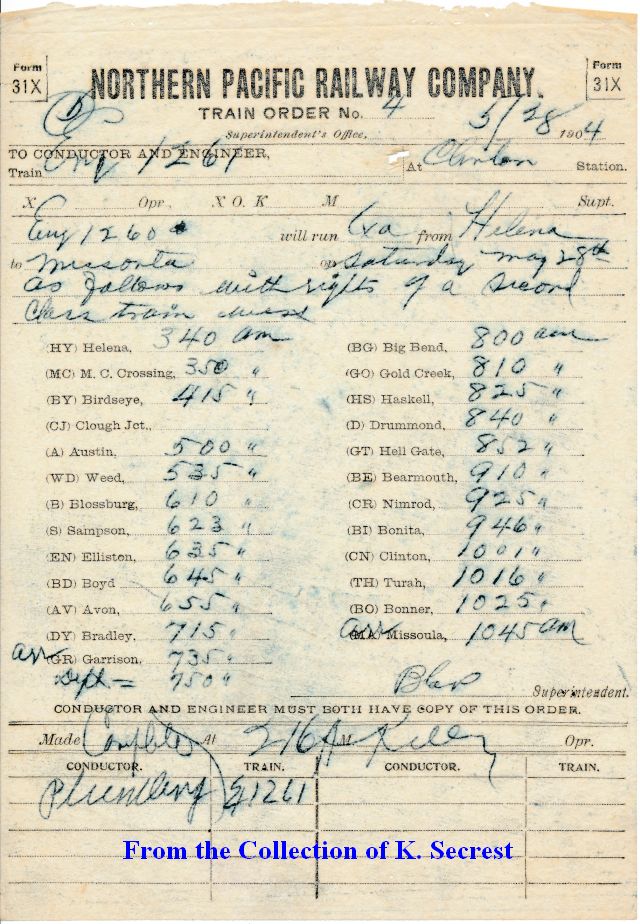 Form
31X
NORTHERN PACIFIC RAILWAY COMPANY.
Form
31X
TRAIN ORDER No. 4
5/28 1904
Superintendent's Office,
TO CONDUCTOR AND ENGINEER,
Train Eng 1261 At Clinton Station.
X Opr., X O. K M Supt.
Eng 1260 will run Exa from Helena
to Missoula on Saturday May 28th
as follows with rights of a second
class train
(HY) Helena, 340 am
(MC) M. C. Crossing, 350 "
(BY) Birdseye, 415 "
(CJ) Clough Jct.,
(A) Austin, 500 "
(WD) Weed, 535 "
(B) Blossburg, 610
(S) Sampson, 623 "
(EN) Elliston, 635 "
(BD) Boyd 645 "
(AV) Avon, 655 "
(DY) Bradley, 715 "
arr (GR) Garrison, 735 "
Dept = 750 "
(BG) Big Bend, 800 am
(GO) Gold Creek, 810 "
(HS) Haskell, 825 "
(D) Drummond, 840 "
(GT) Hell Gate, 852 "
(BE) Bearmouth, 910 "
(CR) Nimrod, 925 "
(BI) Bonita, 946 "
(CN) Clinton, 1001 "
(TH) Turah, 1016 "
(BO) Bonner, 1025 "
arr (MA) Missoula, 1045 am
Superintendent.
CONDUCTOR AND ENGINEER MUST BOTH HAVE COPY OF THIS ORDER.
Made Complete At 216 A M Kelley Opr.
CONDUCTOR. TRAIN. CONDUCTOR. TRAIN.
1261
From the Collection of K. Secrest